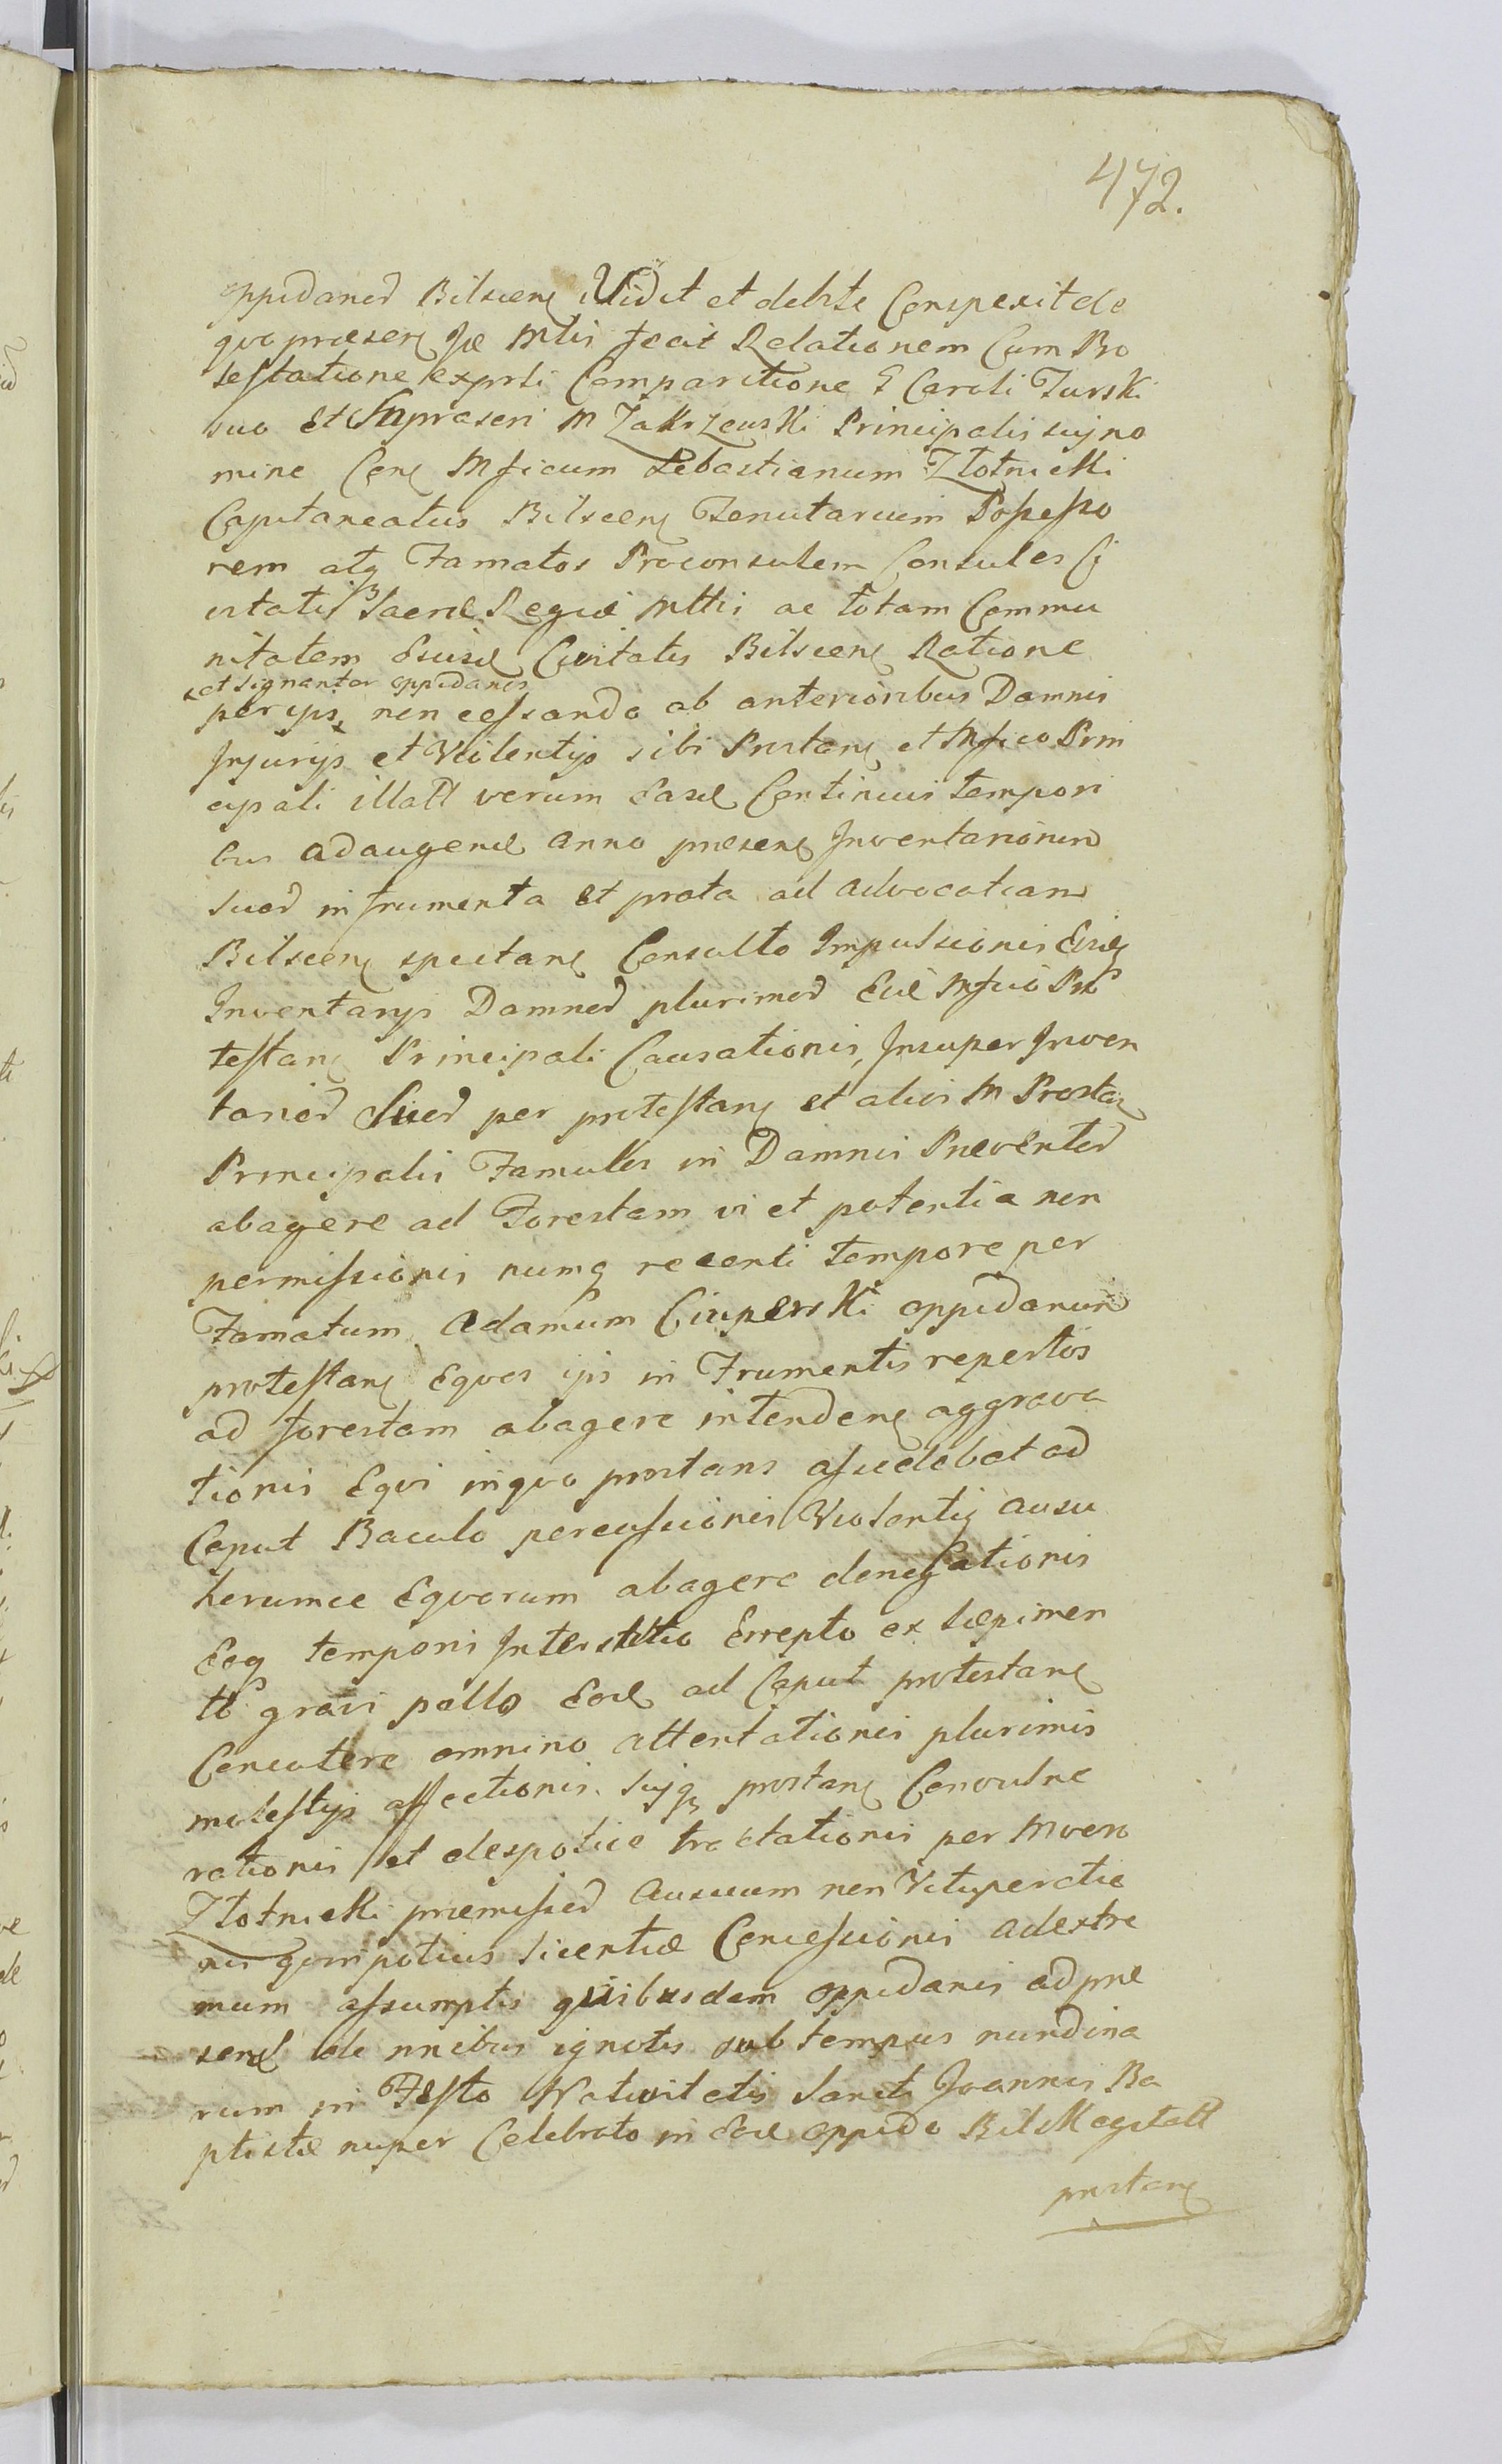 472.
oppidanos Bilscen Vidit et debite Conspexit de
quo praesen se Mtis fecit Relationem Cum Pro
testatione expsti Comparitione G Caroli Turski
suo et Suprascri M Zakrzewski Principalis sui no
mine Con Mficum Sebastianum Zlotnicki
Capitaneatus Bilscen Tenutarium Possesso
rem atq Famatos Proconsulem Consules Ci
vitatis Sacrae Regiae Mttis ac totam Commu
nitatem Ejusd Civitatis Bilscen Ratione
et signanter oppidanis
per ips non cessando ab anterioribus Damnis
Injurijs et Violentijs sibi Prostan et Mfico Prin
cipali illatt verum Easd Continuis tempori
bus adaugend anno praesen Inventariorum
suor in frumenta et prata ad advocatiam
Bilscen spectan Consulto Impulsionis Eisq
Inventarijs Damnor plurimor Eid Mfico Pro
testan Principali Causationis, Insuper Inven
tarior Suor per protestan et alios M Prostan
Principalis Famulos in Damnis Preventor
abagere ad Forestam vi et potentia non
permissionis numq recenti tempore per
Famatum Adamum Ciuperski oppidanum
protestan Equos ijs in Frumentis repertos
ad forestam abagere intenden aggrava
tionis Equi in quo prostans assidebat ad
Caput Baculo percussionis Violentij ausu
horumce Equorum abagere denegationis
Eoq temporis Interstitio Errepto ex saepimen
to gravi pallo Eod ad Caput protestan
Concutere omnino attentationis plurimis
molestijs affectionis sujq prostan Convulne
rationis et despotice tractationis per M vero
Zlotnicki praemissor ausuum non Vituperatio
nis quin potius licentiae Concessionis ad extre
mum assumptis quibusdam oppidanis ad prae
send de nnibus ignotis sub tempus nundina
rum in Festo Nativitatis Sancti Joannis Ba
ptistae nuper Celebrato in Eod oppido Bilsk
prostan